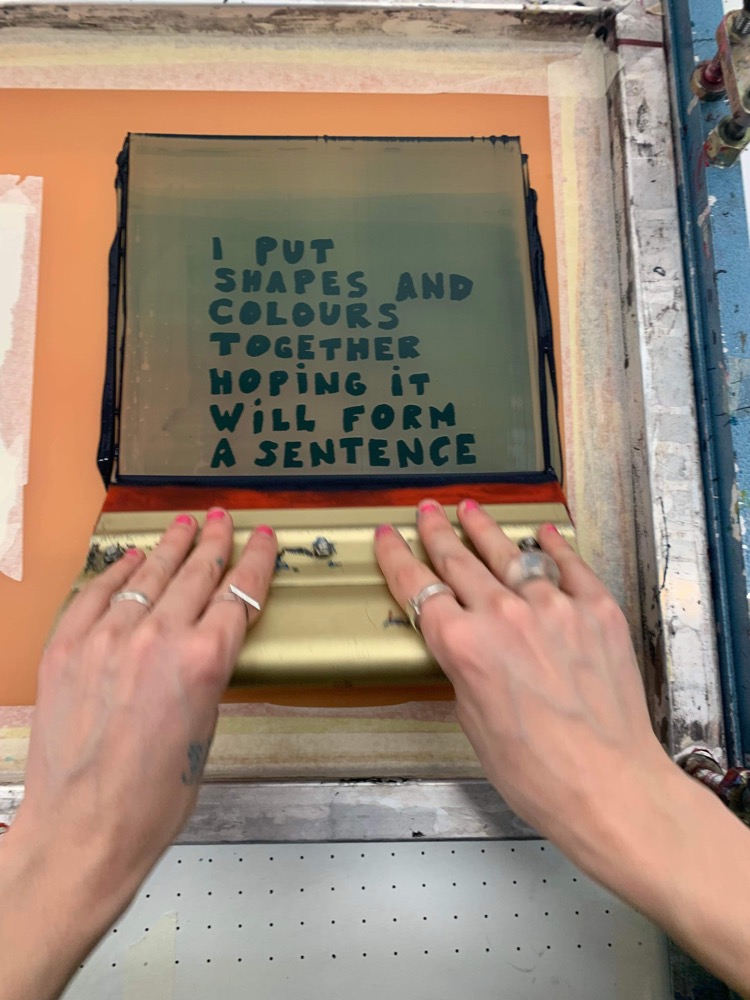 I PUT
SHAPES AND
COLOURS
TOGETHER
HOPiNG iT
WiLL FORM
A SENTENCE